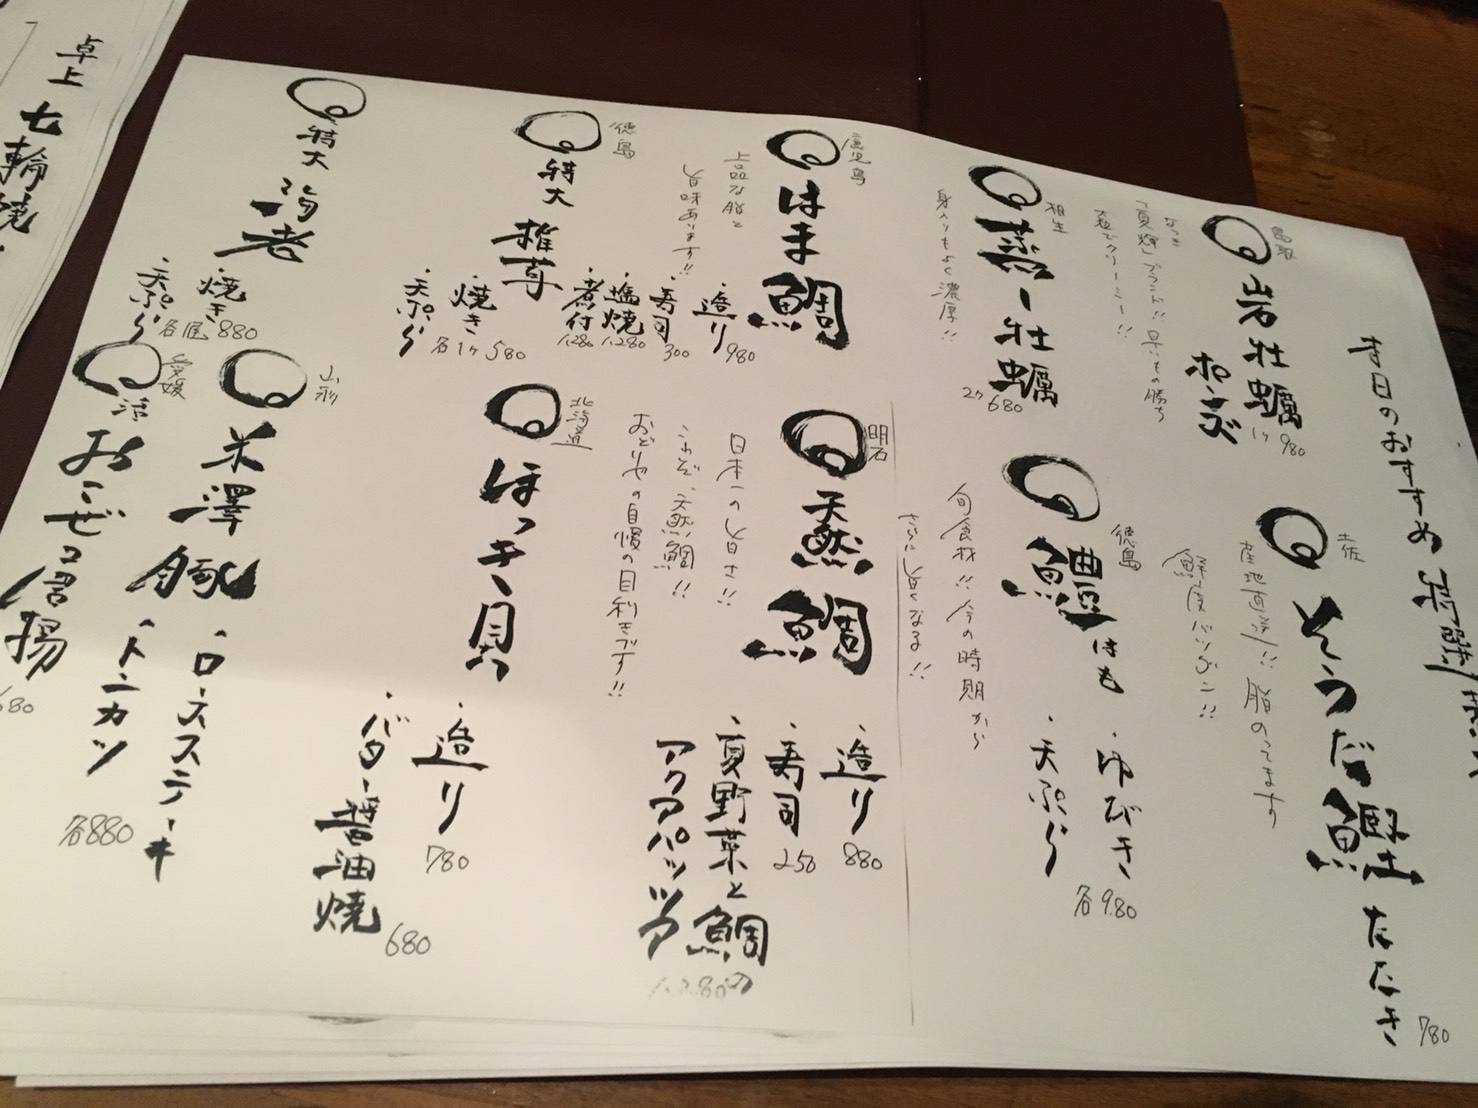 本日のおすすめ
鳥取
岩牡蠣
ポン酢
1ヶ980
なつき
「夏輝」ブランド!! 早いもの勝ち
大粒でクリーミー!!
土佐
そうだ鰹たたき
780
産地直送!! 脂のってます
鮮度バツグン!!
相生
蒸し牡蠣
2ヶ680
身入りもよく濃厚!!
徳島
鱧はも
・ゆびき
・天ぷら
各980
旬食材!! 今の時期から
さらに旨くなる!!
鹿児島
はま鯛
上品な脂と
旨味あります!!
・造り
980
・寿司
300
・塩焼
1,280
・煮付
1,280
明石
天然鯛
日本一の旨さ!!
これぞ、天然鯛!!
おどりやの自慢の目利きです!!
・造り
880
・寿司
250
・夏野菜と鯛の
アクアパッツア
1,280
徳島
特大
椎茸
・焼き
・天ぷら
各1ヶ580
北海道
ほっき貝
・造り
780
・バター醤油焼
680
特大
海老
・焼き
・天ぷら
各1尾880
山形
米澤豚
・ロースステーキ
・トンカツ
各880
愛媛
活
おこぜ唐揚
卓上 七輪焼